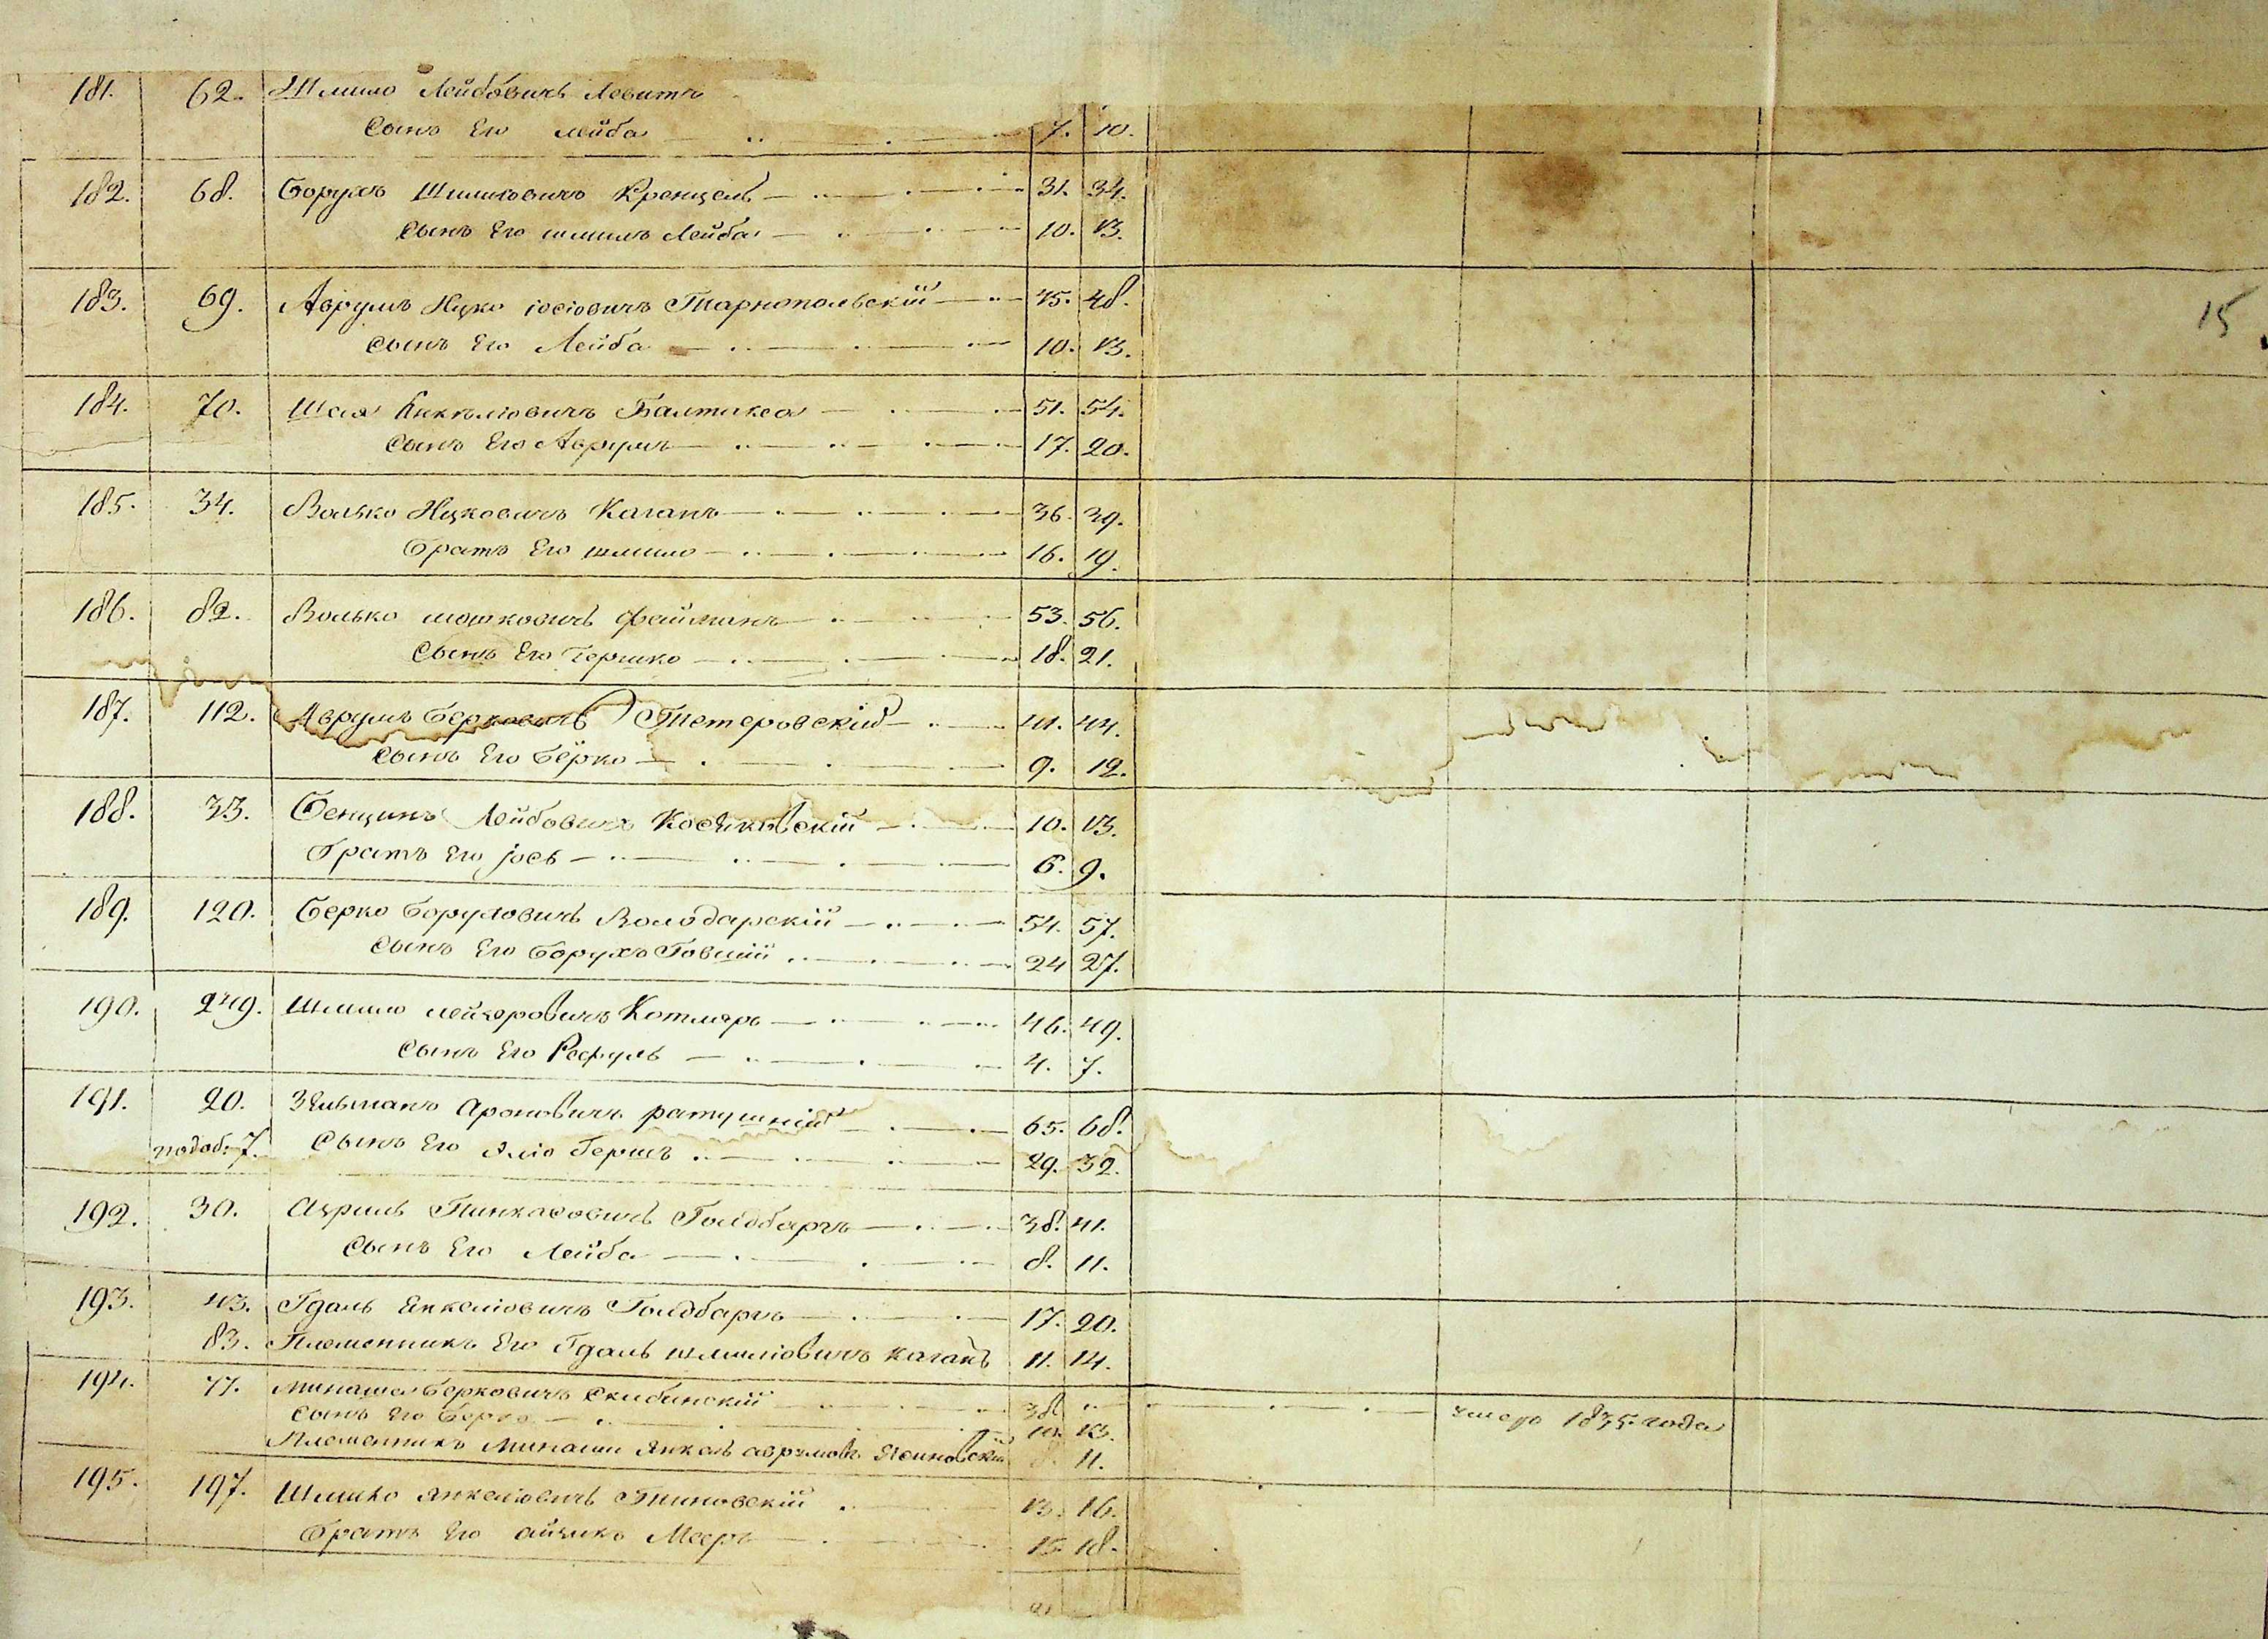 181. 62. Шмило Лейбовичъ Левитъ
Сынъ Его лейба 7. 10.
182. 68. Борухъ Шмилиовичъ Кренцель 31. 34.
Сынъ Его шмиль Лейба 10. 13.
183. 69. Аврумъ Ицко іосіовичъ Тарнопольскій 45. 48.
Сынъ Его Лейба 10. 13.
15
184. 70. Шая Янкелiовичъ Балтакса 51. 54.
Сынъ Его Аврумъ 17. 20.
185. 34. Волько Ицковичъ Каганъ 36. 39.
братъ Его шмило 16. 19.
186. 82. Волько мошковичъ фейманъ 53. 56.
Сынъ Его Гершко 18. 21.
187. 112. Аврумъ Берковичъ Тетеровскій 41. 44.
Сынъ Его Берко 9. 12.
188. 33. Бенцинъ Лейбовичъ Косяковскій 10. 13.
братъ Его іось 6. 9.
189. 120. Берко Боруховичъ Володарскій 54. 57.
Сынъ Его Борухъ Говшій 24 27.
190. 249. Шмило лейзеровичъ Котляръ 46. 49.
Сынъ Его Рефуль 4. 7.
191. 20. Зельманъ Ароновичъ ратушній 65. 68.
подоб. 7. Сынъ Его Эліо Гершъ 29. 32.
192. 30. Азриль Пинкасовичъ Голдбаргъ 38. 41.
Сынъ Его Лейба 8. 11.
193. 43. Гдаль Янкеліовичъ Голдбаргъ 17. 20.
83. Племенникъ Его Гдаль шмиліовичъ каганъ 11. 14.
194. 77. Минаша Берковичъ Скибинскій 38. 1835. года
Сынъ Его Берко 10. 13.
Племенникъ Минаши Янкель аврумов. Ясиновскій 8. 11.
195. 197. Шмило янкеліовичъ 13. 16.
братъ Его айзикъ Мееръ 15. 18.